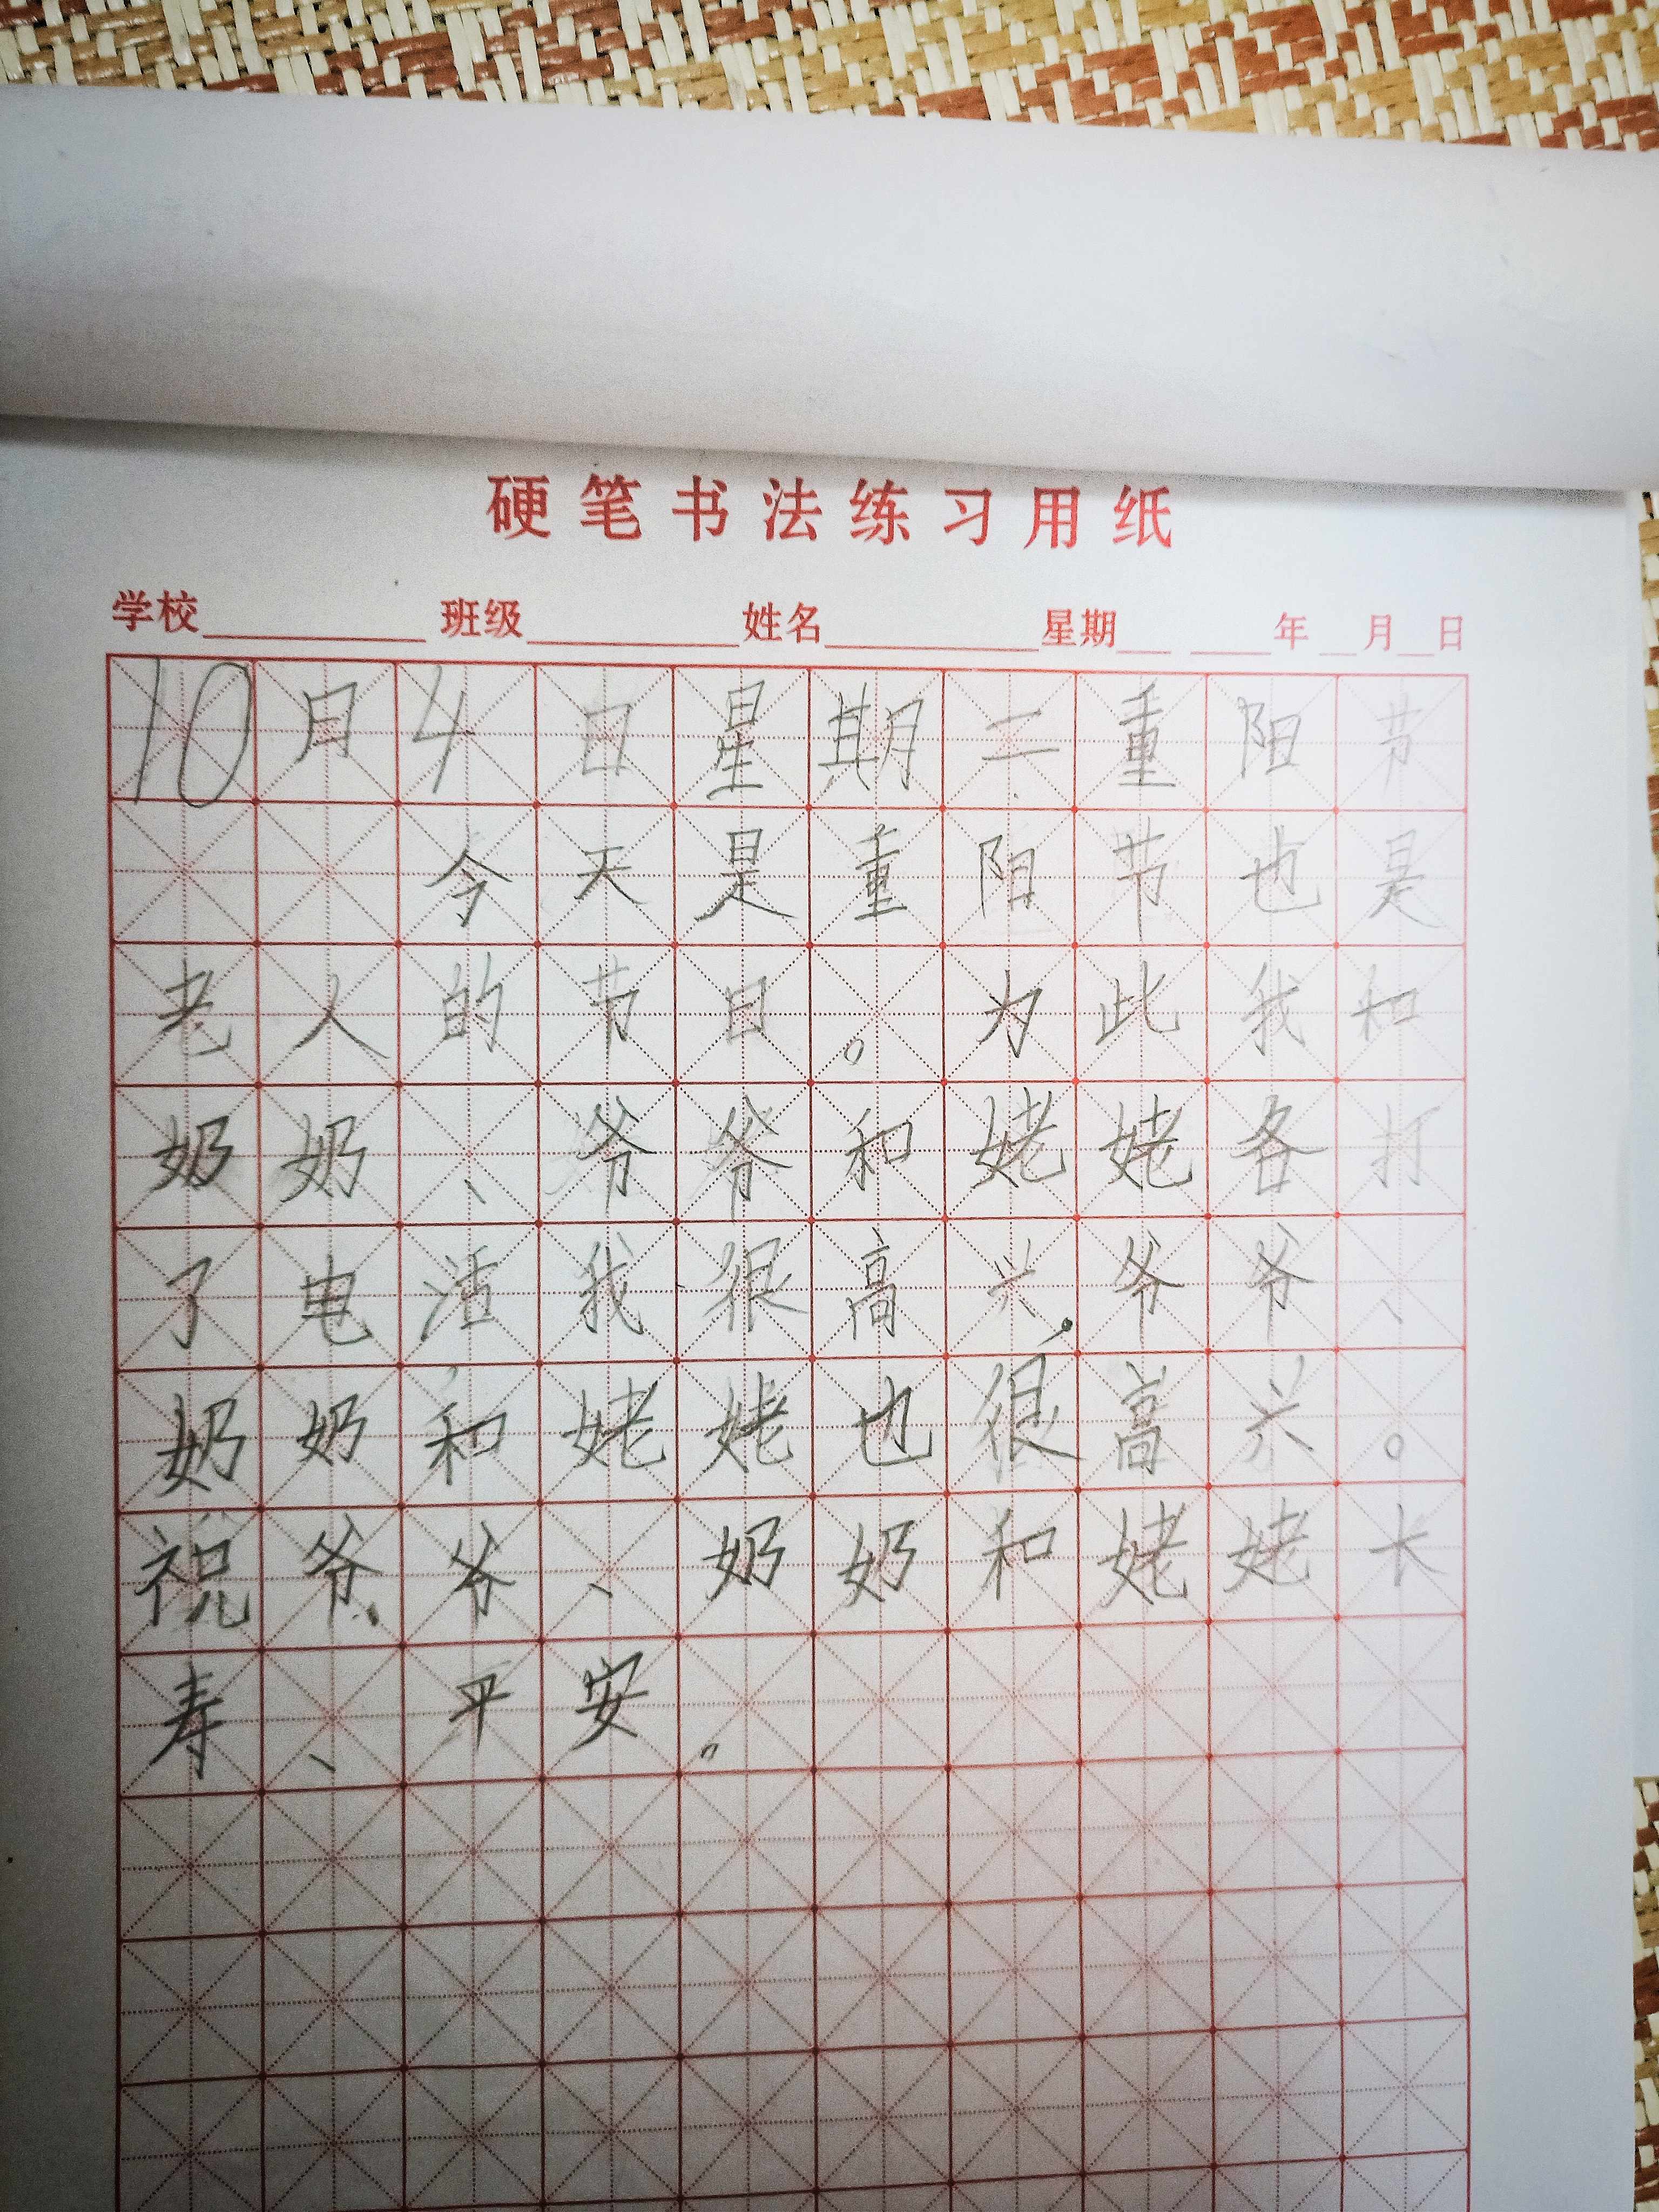 硬笔书法练习用纸
学校 班级 姓名 星期 年 月 日
10月4日星期二重阳节
今天是重阳节也是
老人的节日。为此我和
奶奶、爷爷和姥姥各打
了电话我很高兴,爷爷、
奶奶和姥姥也很高兴。
祝爷爷、奶奶和姥姥长
寿、平安。